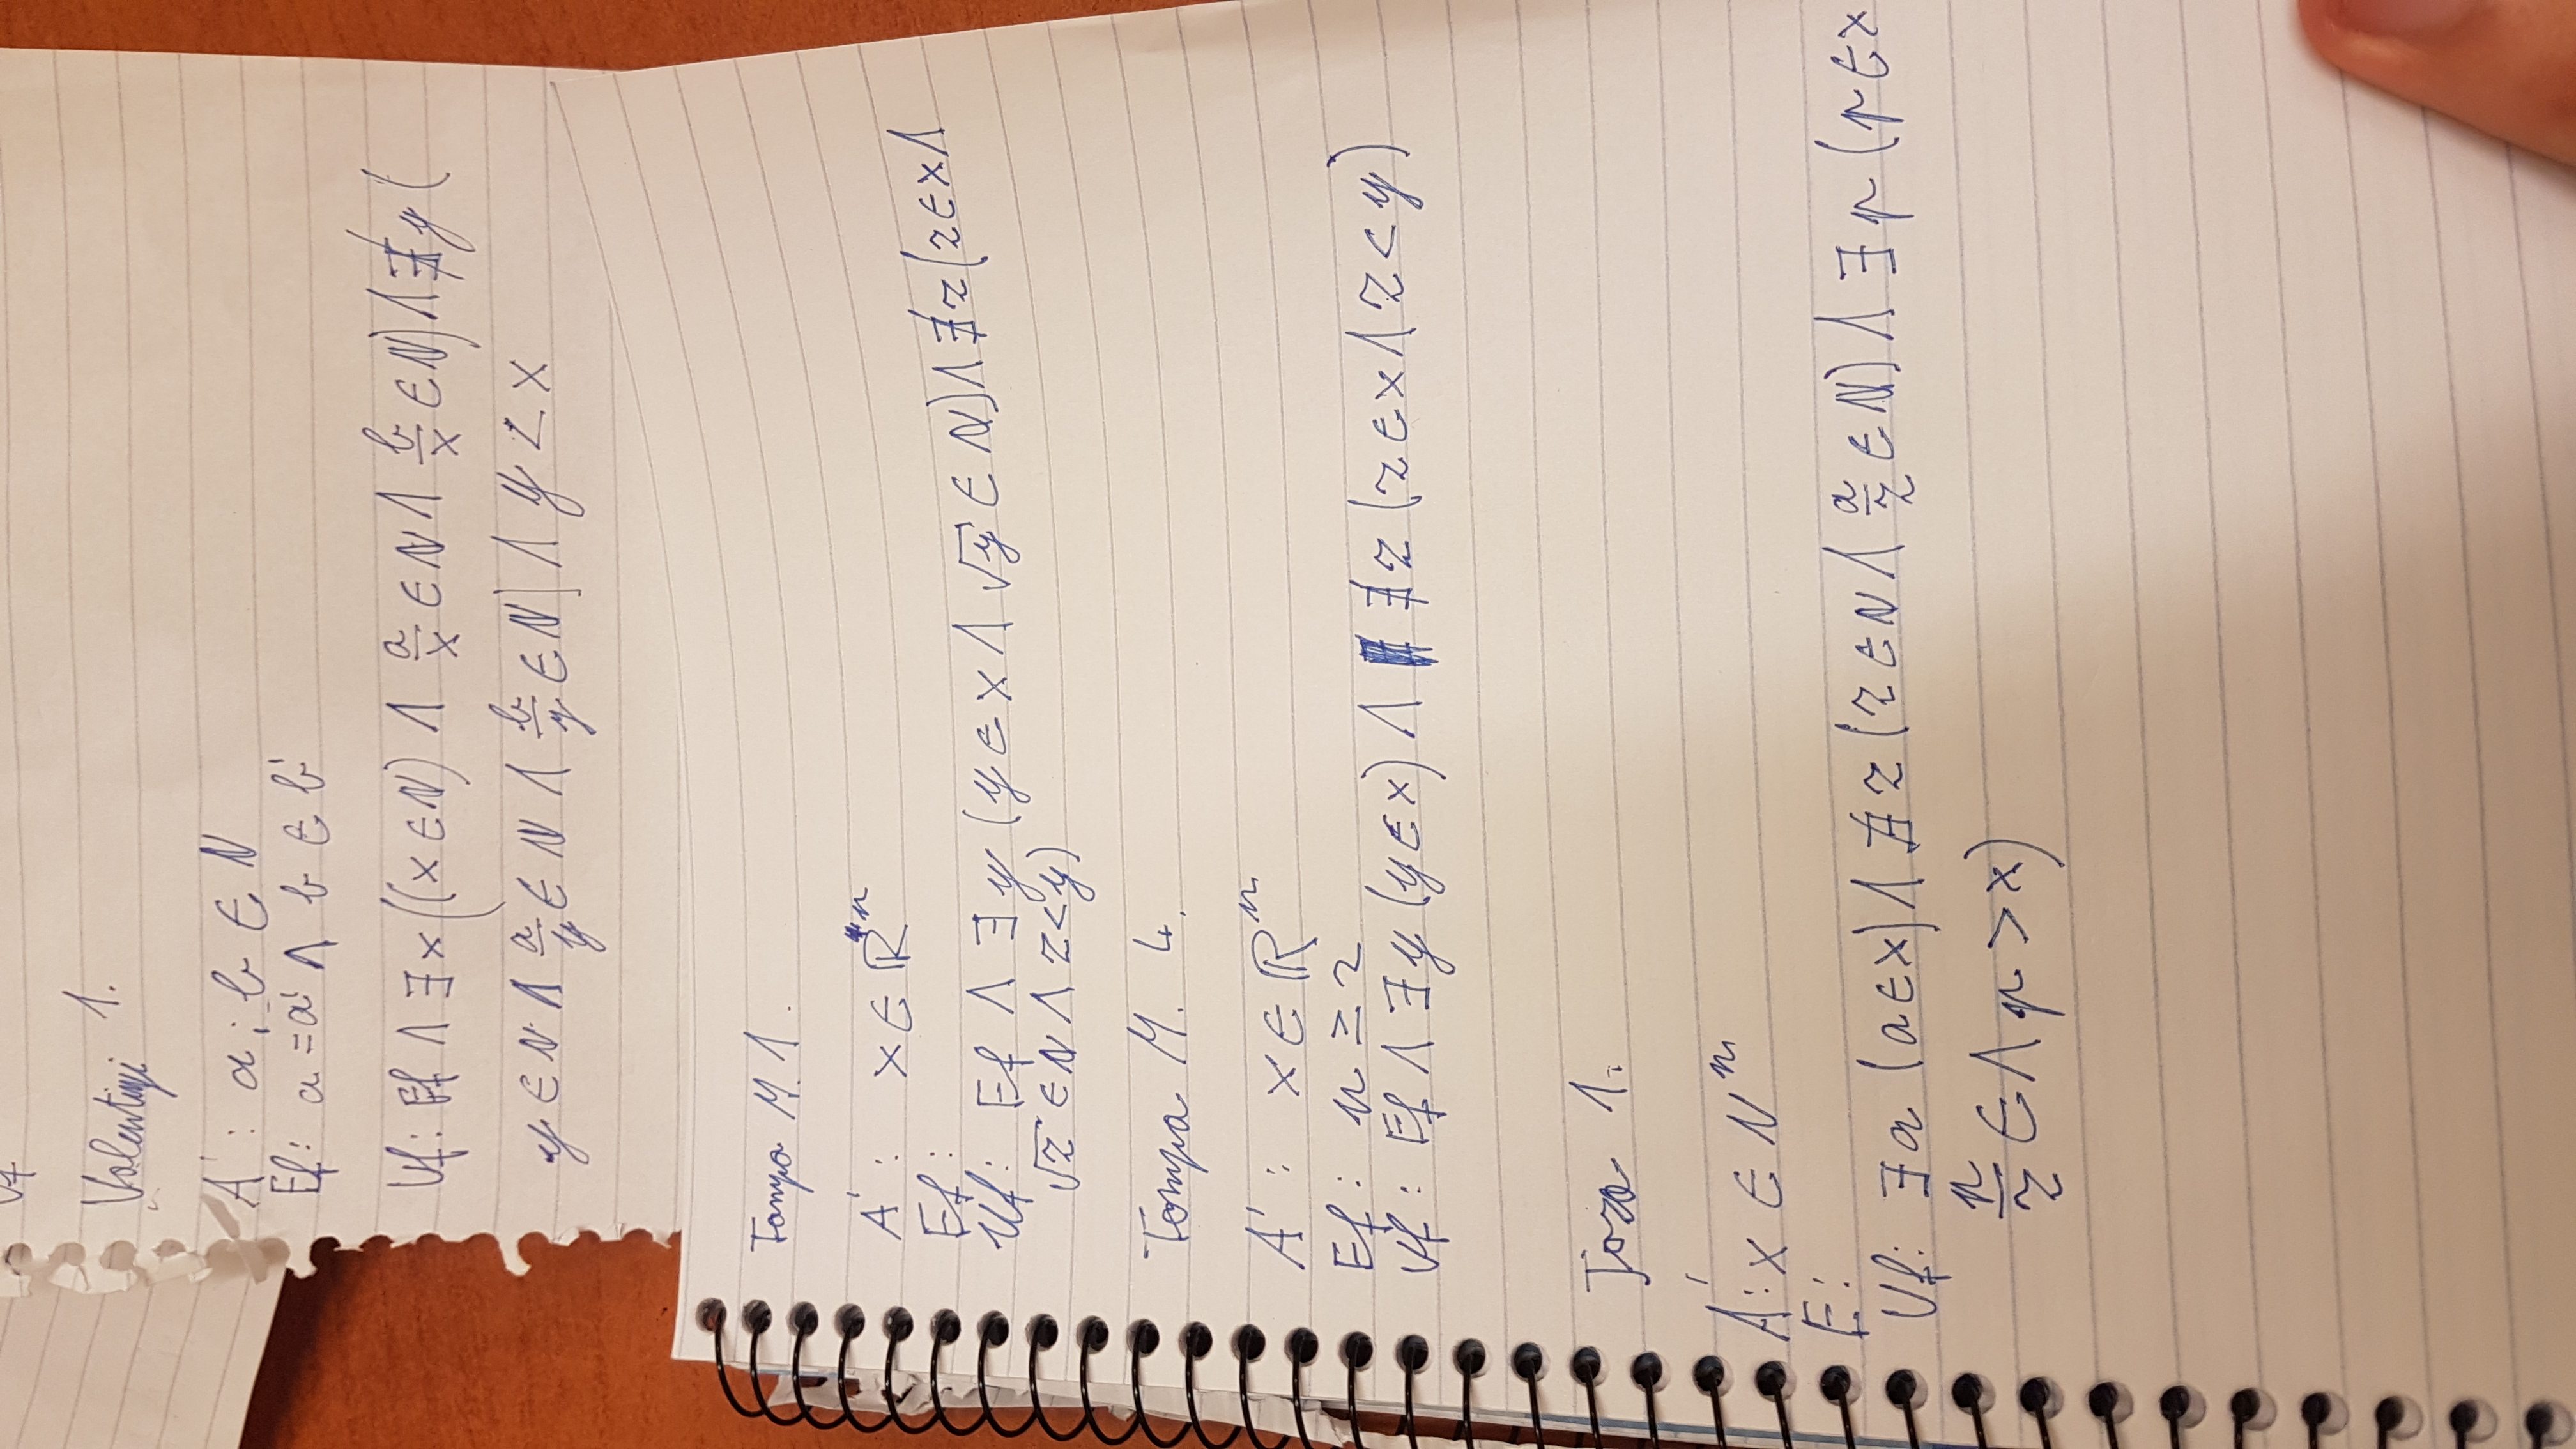 Uf
Valentinyi 1.
Á : a ; b ∈ N
Ef: a = a' ∧ b ∈ b'
Uf: Ef ∧ ∃x((x ∈ N) ∧ a/x ∈ N ∧ b/x ∈ N) ∧ ∄y (
y ∈ N ∧ a/y ∈ N ∧ b/y ∈ N) ∧ y < x
Tompa M. 1.
Á : x ∈ ℝⁿ
Ef :
Uf: Ef ∧ ∃y (y ∈ x ∧ √y ∈ N) ∧ ∄z (z ∈ x ∧
√z ∈ N ∧ z < y)
Tompa M. 4.
Á : x ∈ ℝⁿ
Ef : n ≥ 2
Uf : Ef ∧ ∃y (y ∈ x) ∧ ∄z (z ∈ x ∧ z < y)
1.
Á: x ∈ Nⁿ
E:
Uf: ∃a (a ∈ x) ∧ ∄z (z ∈ N ∧ a/z ∈ N) ∧ ∃p (p ∈ x
p/z ∈ ∧ p > x)